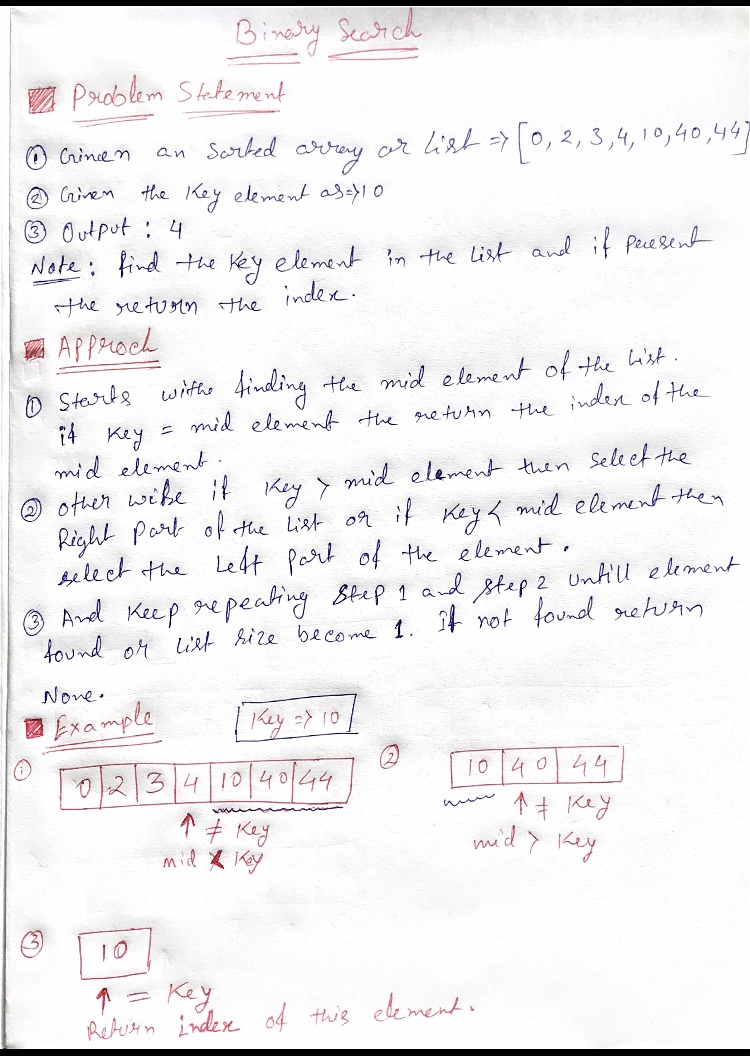 Binary Search
Problem Statement
① Given an Sorted array or List => [0, 2, 3, 4, 10, 40, 44]
② Given the Key element as=>10
③ Output : 4
Note : find the Key element in the List and if present
the return the index.
Approch
① Starts withe finding the mid element of the List.
if Key = mid element the return the index of the
mid element.
② other wise if Key > mid element then select the
Right Part of the List or if Key < mid element then
select the Left part of the element.
③ And Keep repeating Step 1 and step 2 untill element
found or List size become 1. If not found return
None.
Example
Key => 10
① 0 2 3 4 10 40 44
↑ ≠ Key
mid < Key
② 10 40 44
↑ ≠ Key
mid > Key
③ 10
↑ = Key
Return index of this element.